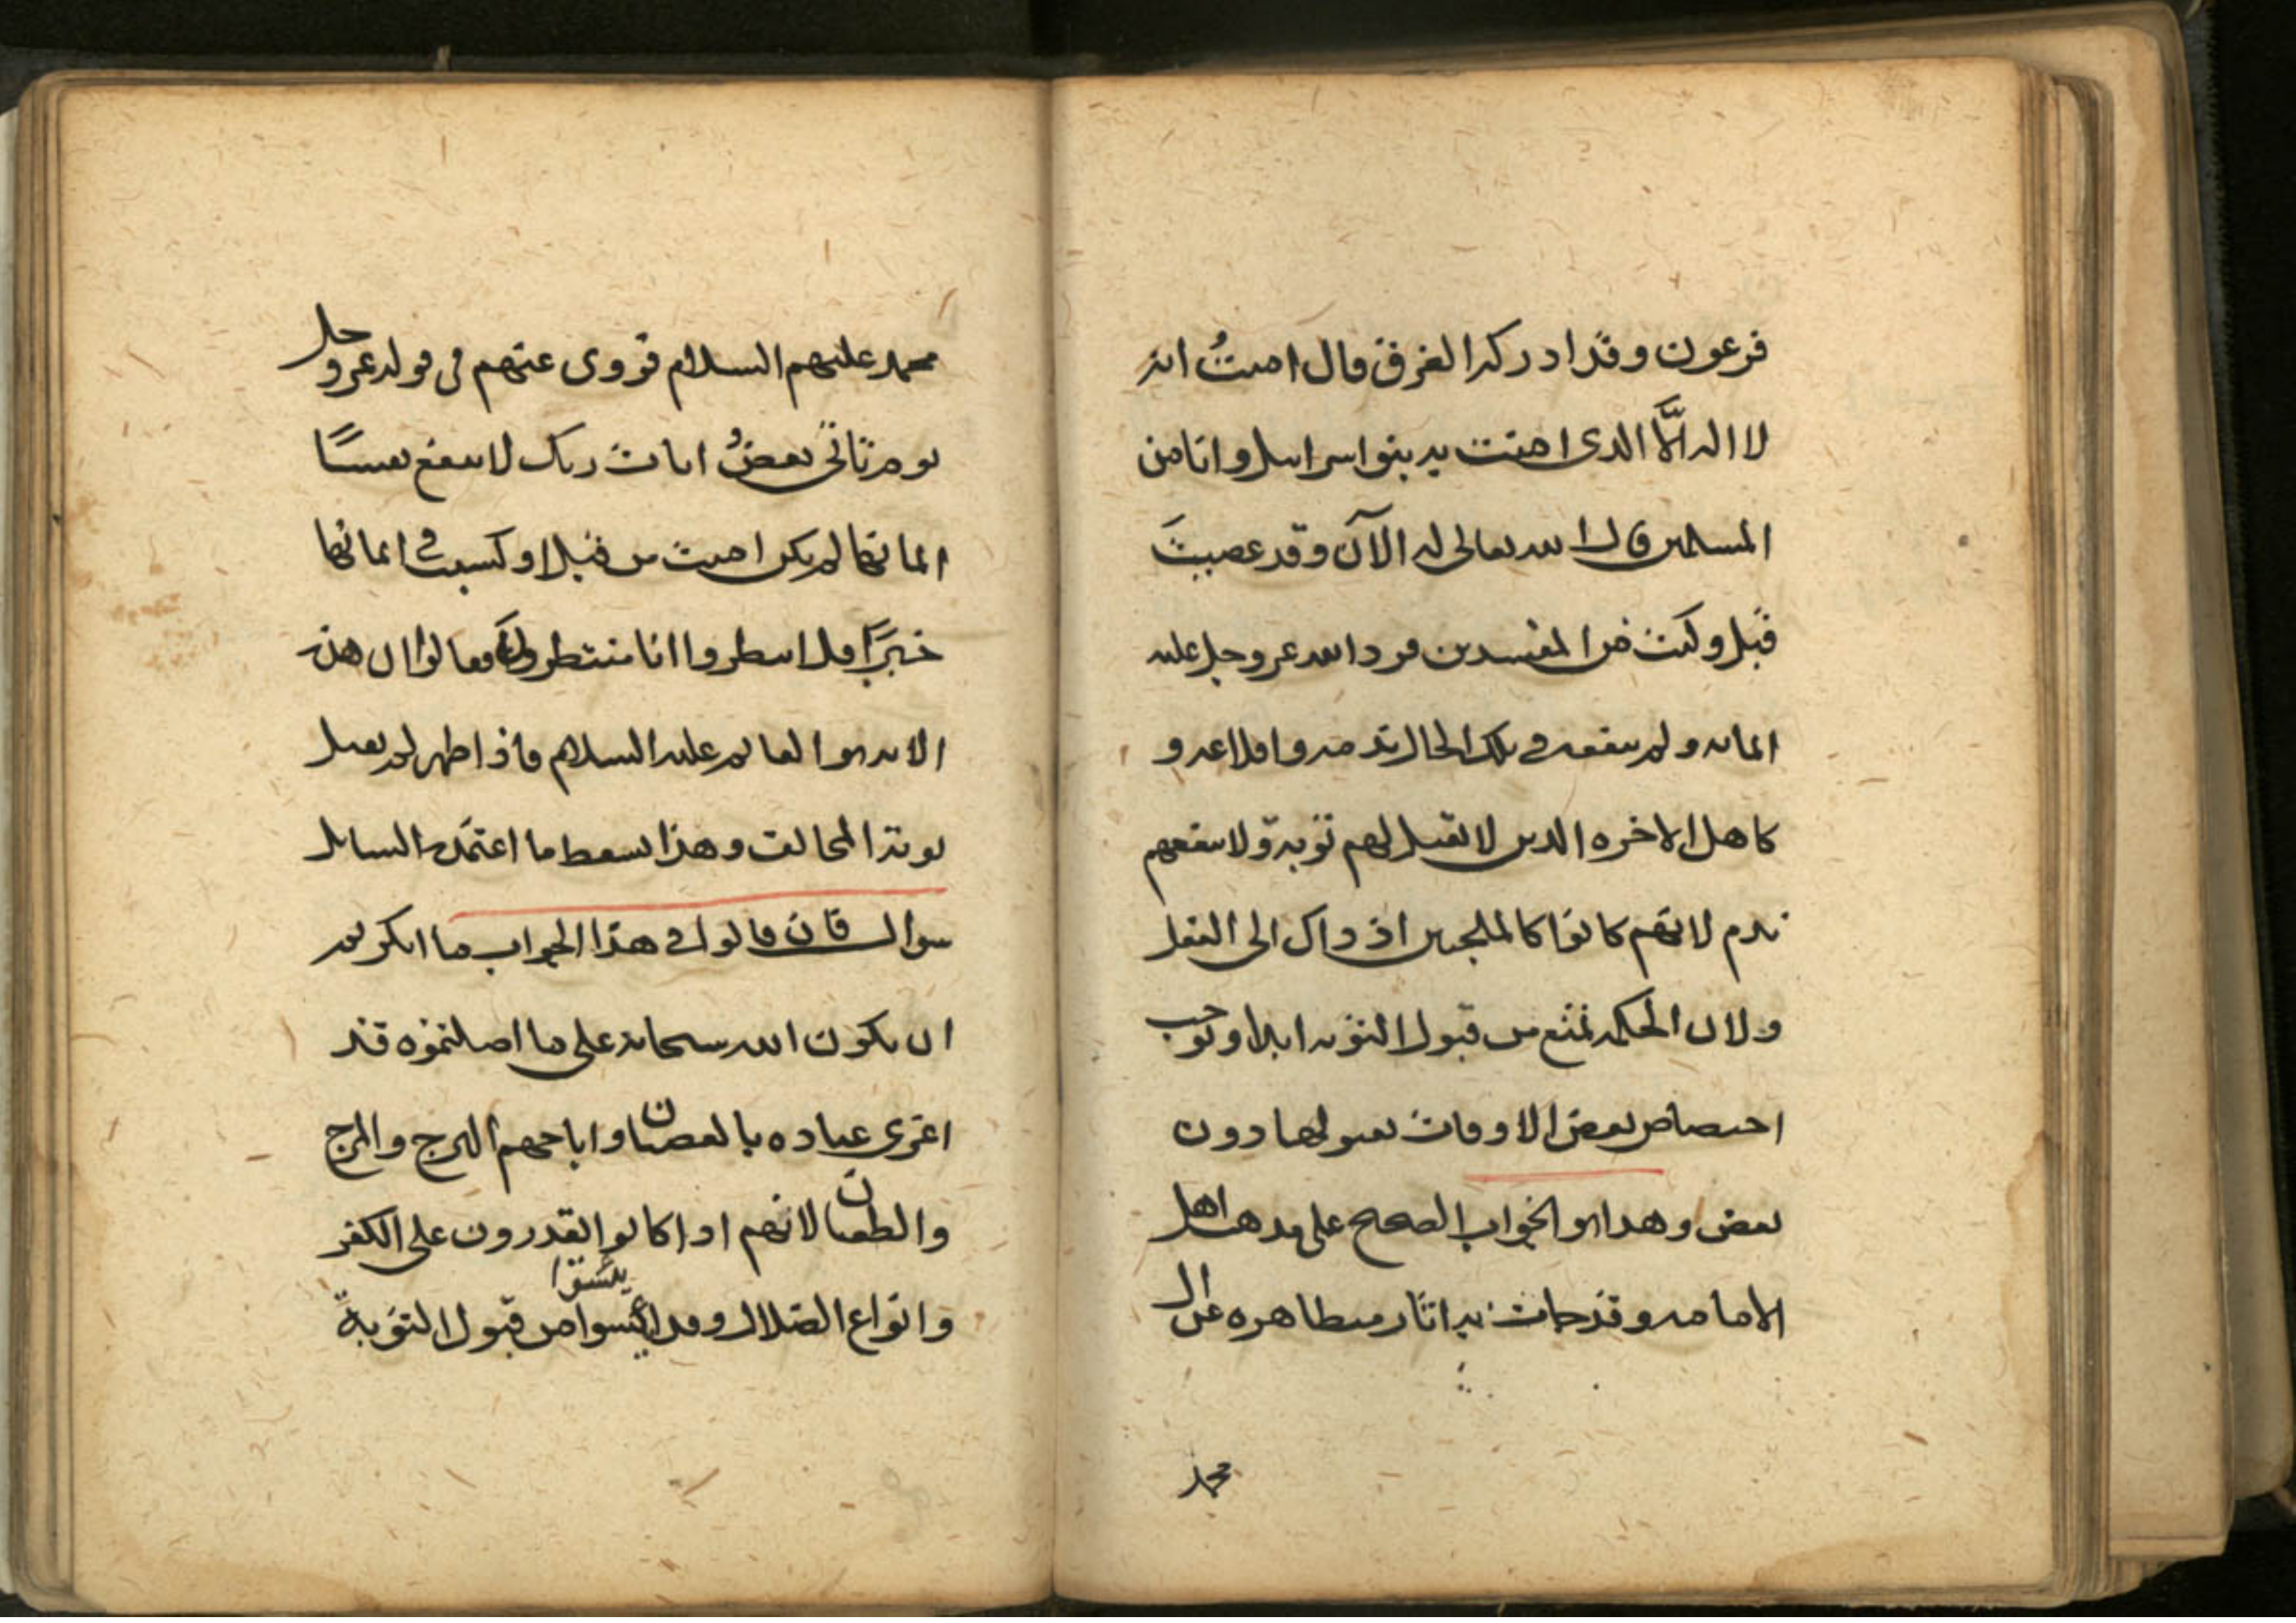 فرعون وقد ادركه الغرق قال امنتُ انه
لا اله الَّا الذى امنت به بنوا اسراىيل وانا من
المسلمين قال الله تعالى له الآن وقد عصيتَ
قبل وكنت من المفسدين فرد الله عز وجل عليه
ايمانه ولم ينفعه فى تلك الحال ندمه واقلاعه و
كاهل الاخره الذين لا يقبل لهم توبة ولا ينفعهم
ندم لانهم كانوا كالملجين اذ ذاك الى الفعل
ولان الحكمه تمنع من قبول التوبه ابدا وتوجب
اختصاص بعض الاوقات بقبولها دون
بعض وهذا هو الجواب الصحيح على مذهب اهل
الامامه وقد جات به اثار متظاهره عن ال
محمد
محمد عليهم السلام فروى عنهم فى قوله عز وجل
يوم تاتى بعضُ ايات ربك لا ينفع نفسًا
ايمانها لم يكن امنت من قبل او كسبت فى ايمانها
خيرًا قل انتظروا انا منتظرون فقالوا ان هذه
الايه هو القايم عليه السلام فاذا ظهر لم يقبل
توبة المخالف وهذا يسقط ما اعتمده السايل
سوال فان قالوا فى هذا الجواب ما انكرتم
ان يكون الله سبحانه على ما اصلتموه قد
اغرى عباده بالعصيان واباحهم الهرج والمرج
والطغيان لانهم اذا كانوا يقدرون على الكفر
وانواع الضلال وقد يىسوا من قبول التوبة